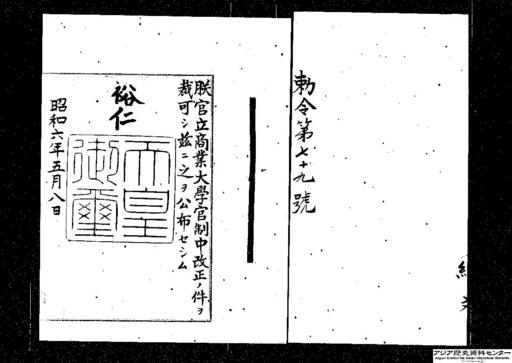 勅令第七十九號
朕官立商業大學官制中改正ノ件ヲ
裁可シ茲ニ之ヲ公布セシム
裕仁
天皇
御璽
昭和六年五月八日
アジア歴史資料センター
Japan Center for Asian Historical Records